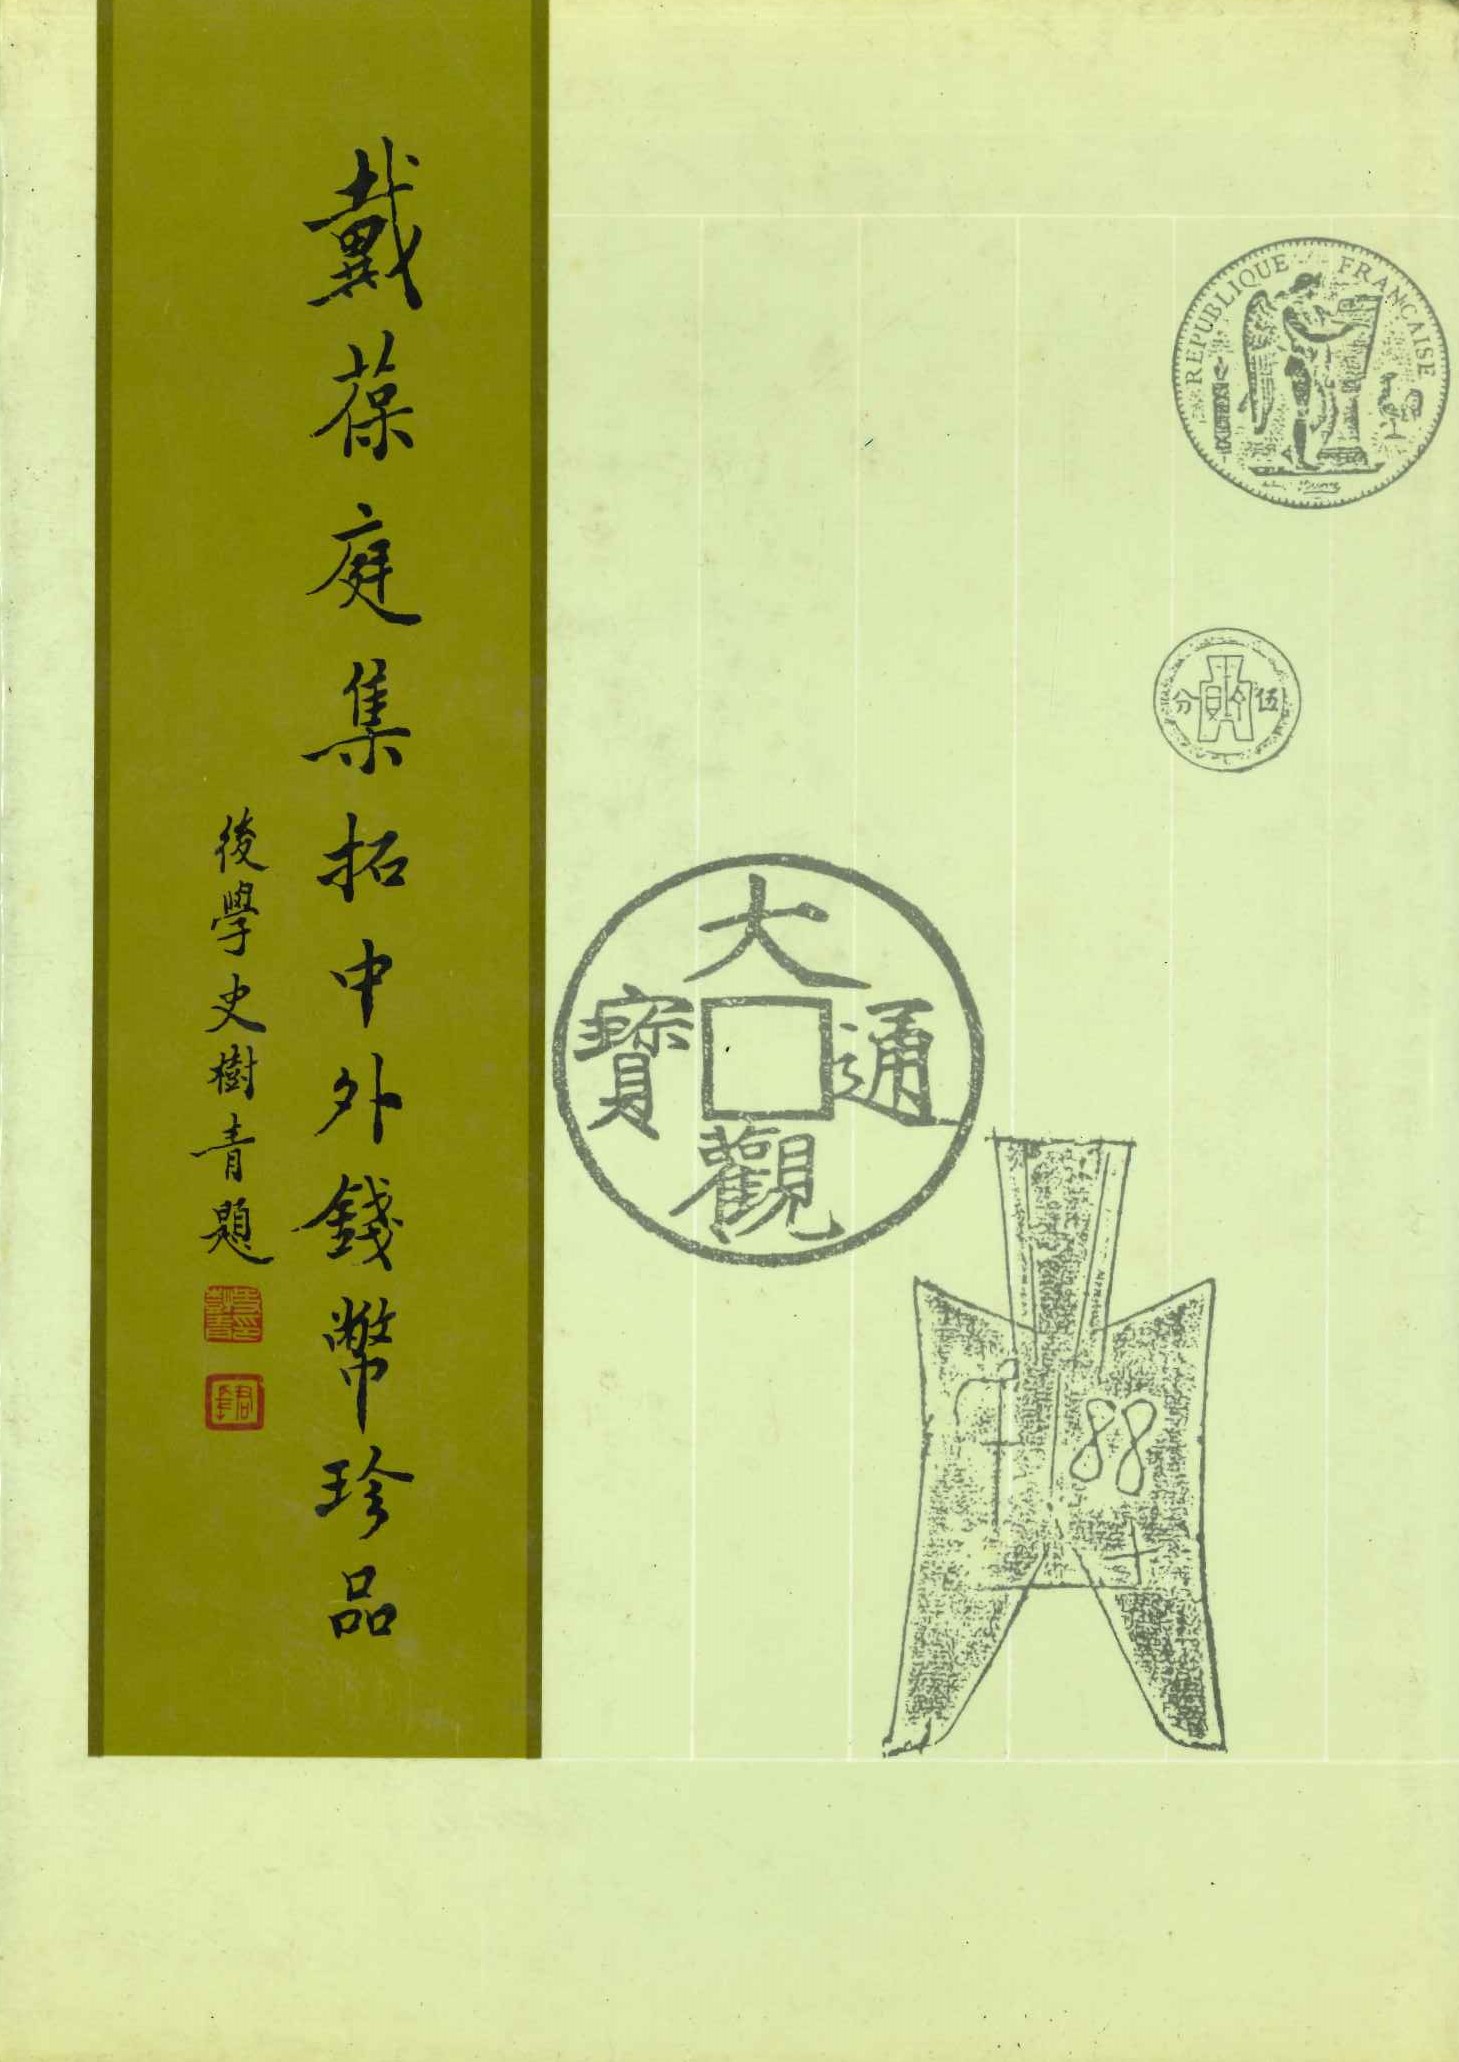 戴葆庭集拓中外錢幣珍品
後學史樹青題
REPUBLIQUE FRANCAISE
分 伍
大觀通寶